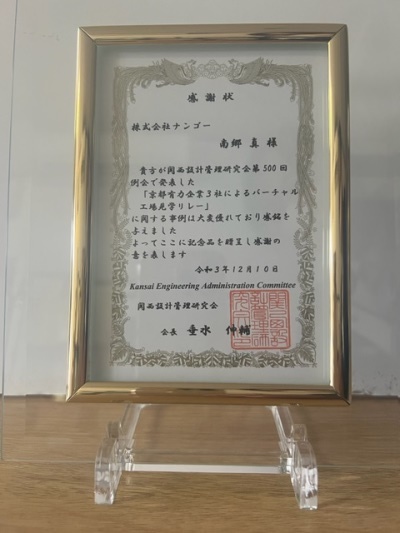 感謝状
株式会社ナンゴー
南郷 真 様
貴方が関西設計管理研究会第500回
例会で発表した
「京都有力企業3社によるバーチャル
工場見学リレー」
に関する事例は大変優れており感銘を
与えました
よってここに記念品を贈呈し感謝の
意を表します
令和3年12月10日
Kansai Engineering Administration Committee
関西設計管理研究会
会長 垂水 伸輔